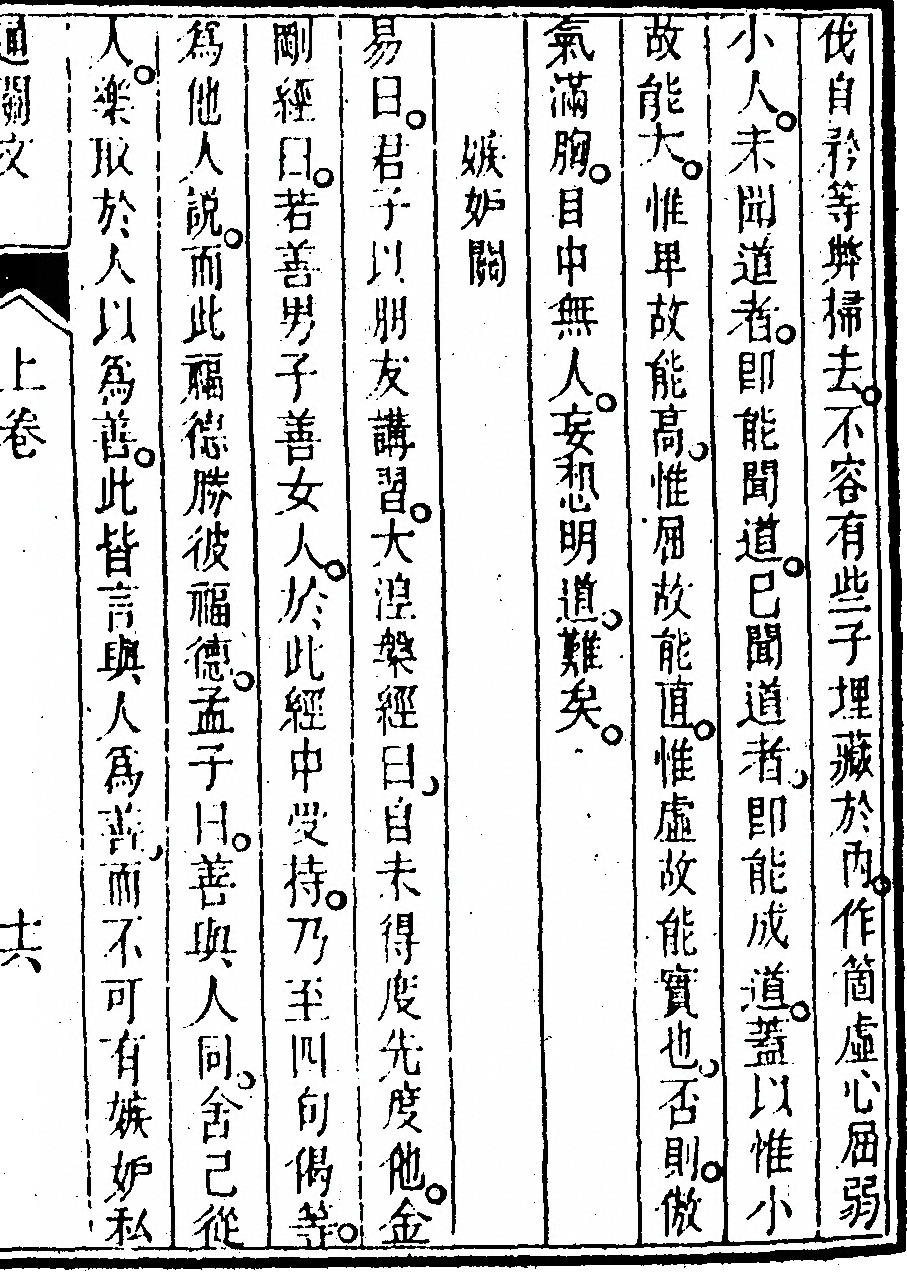 伐自矜等弊掃去。不容有些子埋藏於內。作箇虛心屈弱
小人。未聞道者。即能聞道。已聞道者、即能成道。蓋以惟小
故能大。惟卑故能高、惟屈故能直。惟虛故能實也、否則。傲
氣滿胸。目中無人。妄想明道、難矣。
嫉妒關
易曰。君子以朋友講習。大涅槃經曰、自未得度先度他。金
剛經曰。若善男子善女人。於此經中受持。乃至四句偈等。
為他人說。而此福德勝彼福德。孟子曰。善與人同、舍己從
人。樂取於人以為善。此皆言與人為善、而不可有嫉妒私
通關文
上卷
十六